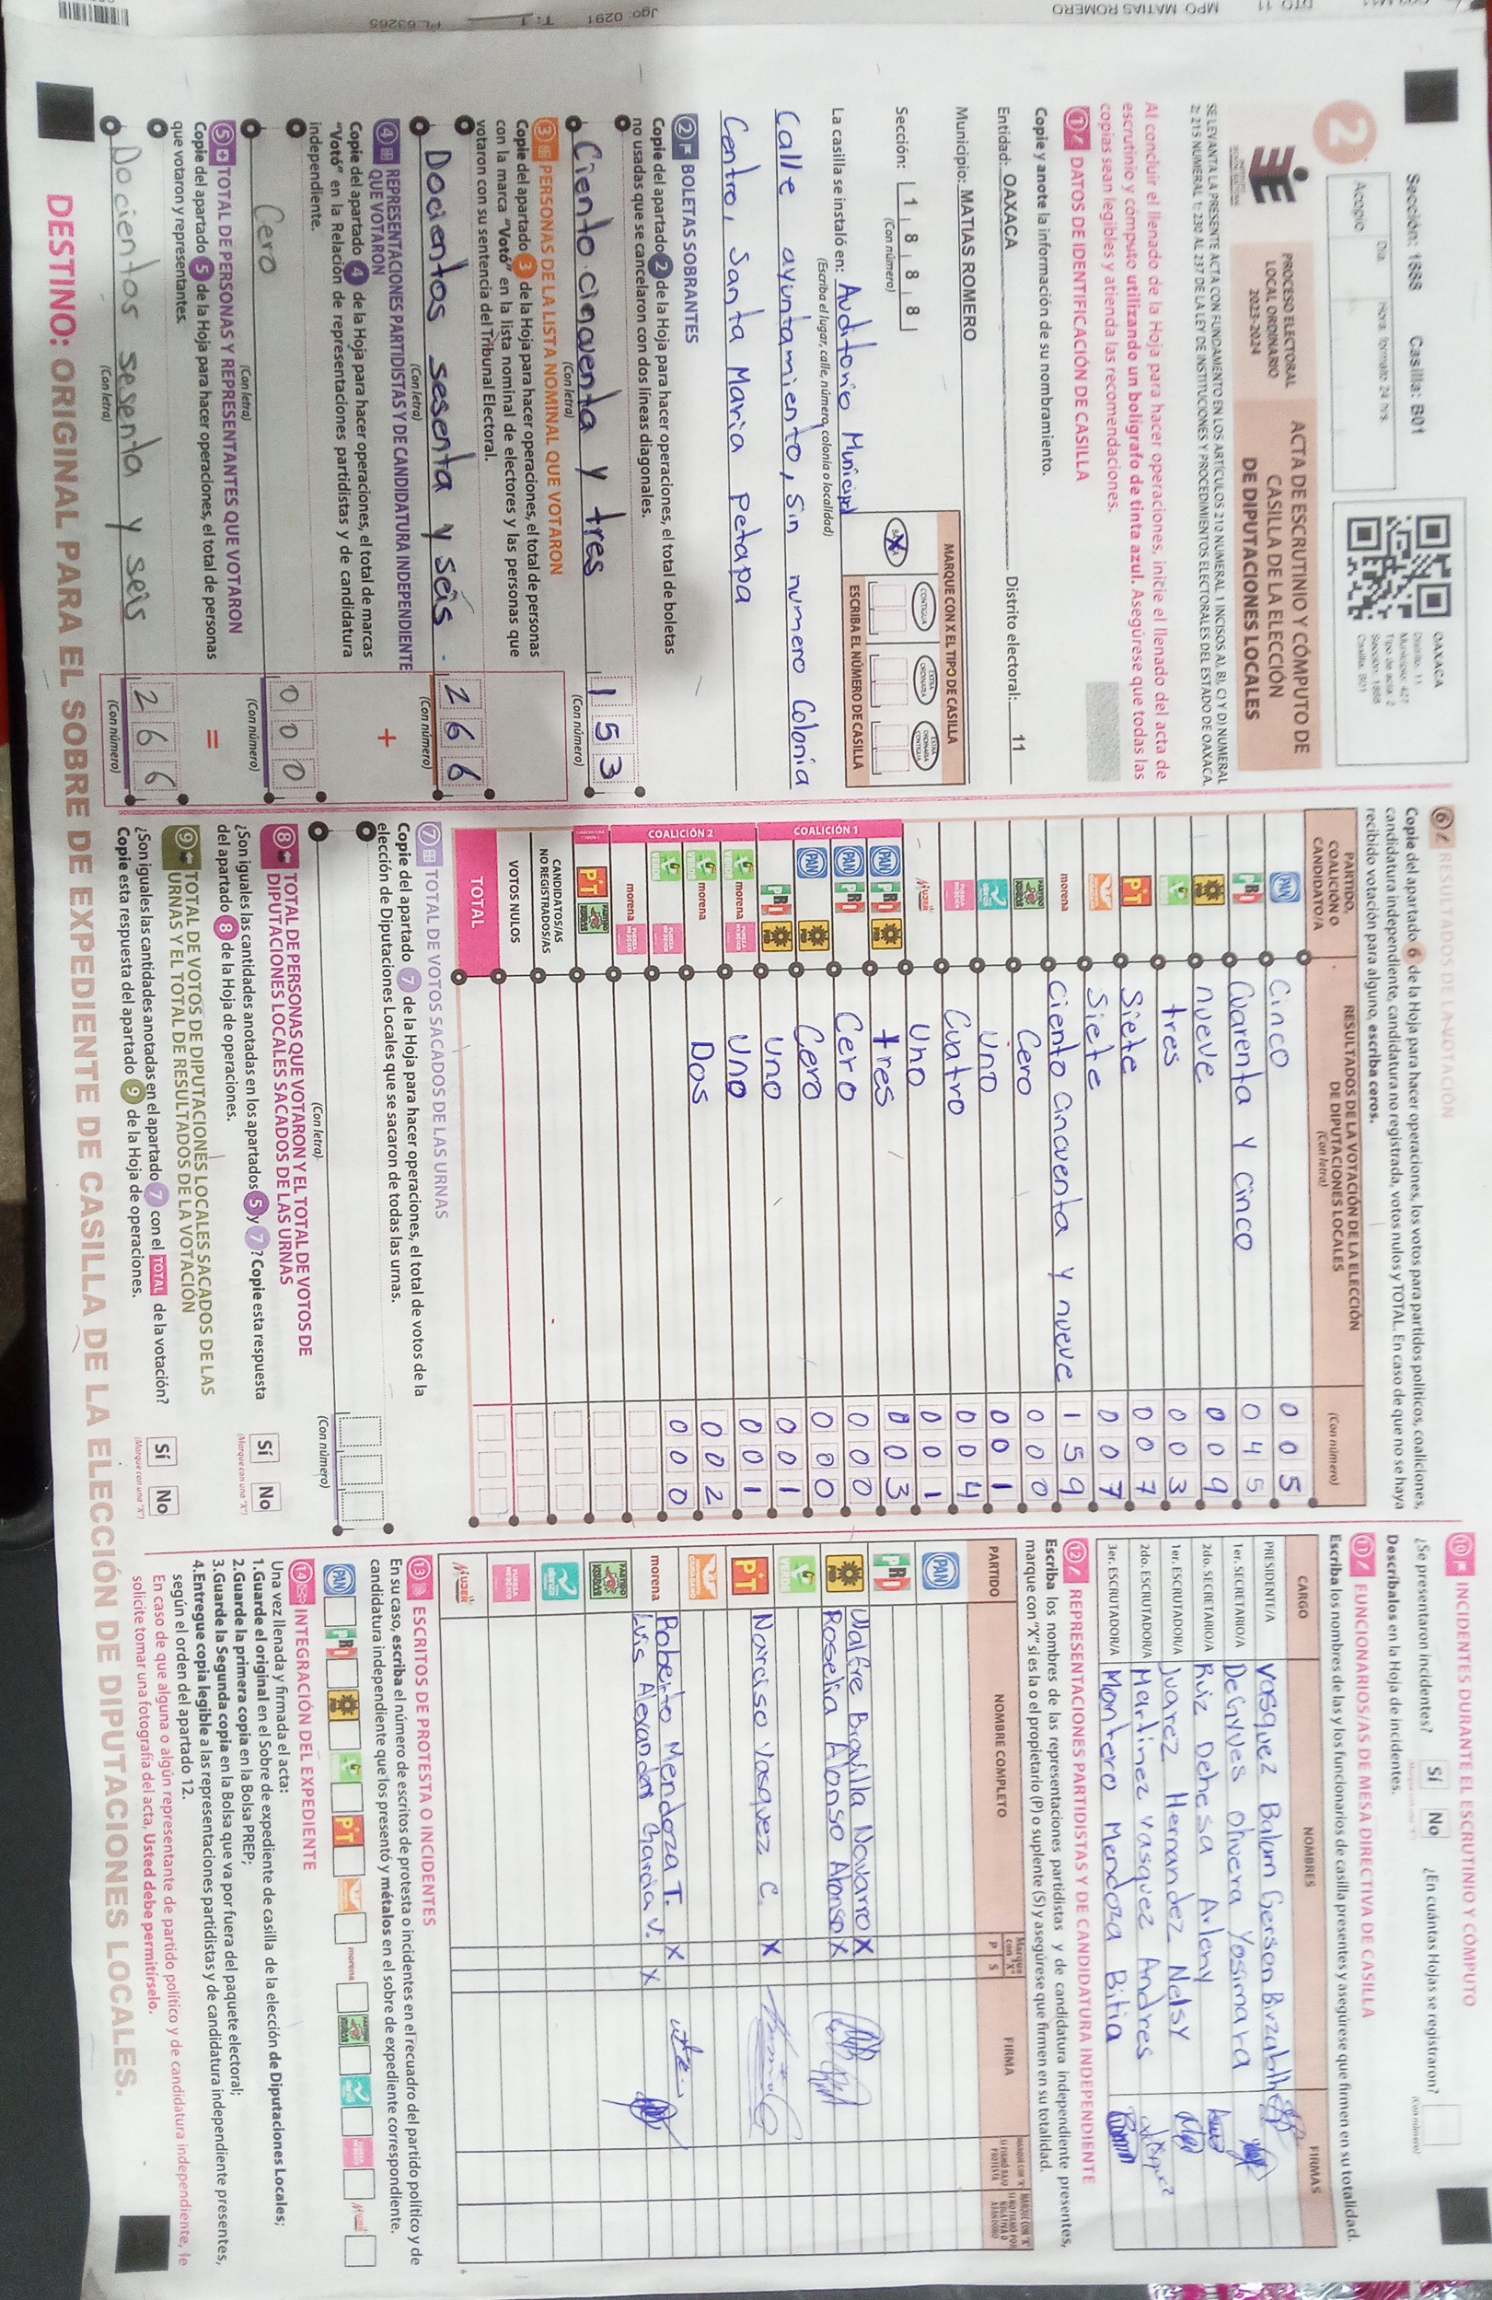 Sección: 1888 Casilla: B01
2
Acopio
Día: Hora: formato 24 hrs.
OAXACA
Distrito: 11
Municipio: 427
Tipo de acta: 2
Sección: 1888
Casilla: B01
PROCESO ELECTORAL
LOCAL ORDINARIO
2023-2024
ACTA DE ESCRUTINIO Y CÓMPUTO DE
CASILLA DE LA ELECCIÓN
DE DIPUTACIONES LOCALES
SE LEVANTA LA PRESENTE ACTA CON FUNDAMENTO EN LOS ARTÍCULOS 210 NUMERAL 1 INCISOS A), B), C) Y D) NUMERAL
2; 215 NUMERAL 1; 230 AL 237 DE LA LEY DE INSTITUCIONES Y PROCEDIMIENTOS ELECTORALES DEL ESTADO DE OAXACA.
Al concluir el llenado de la Hoja para hacer operaciones, inicie el llenado del acta de
escrutinio y cómputo utilizando un bolígrafo de tinta azul. Asegúrese que todas las
copias sean legibles y atienda las recomendaciones.
1 DATOS DE IDENTIFICACIÓN DE CASILLA
Copie y anote la información de su nombramiento.
Entidad: OAXACA Distrito electoral: 11
Municipio: MATIAS ROMERO
Sección: 1 8 8 8
(Con número)
MARQUE CON X EL TIPO DE CASILLA
BÁSICA CONTIGUA EXTRAORDINARIA EXTRAORDINARIA CONTIGUA
ESCRIBA EL NÚMERO DE CASILLA
La casilla se instaló en: Auditorio Municipal
(Escriba el lugar, calle, número, colonia o localidad)
Calle ayuntamiento, sin numero Colonia
Centro, Santa Maria petapa
2 BOLETAS SOBRANTES
Copie del apartado 2 de la Hoja para hacer operaciones, el total de boletas
no usadas que se cancelaron con dos líneas diagonales.
Ciento cincuenta y tres 1 5 3
(Con letra) (Con número)
3 PERSONAS DE LA LISTA NOMINAL QUE VOTARON
Copie del apartado 3 de la Hoja para hacer operaciones, el total de personas
con la marca "Votó" en la lista nominal de electores y las personas que
votaron con su sentencia del Tribunal Electoral.
Docientos sesenta y seis. 2 6 6
(Con letra) (Con número)
4 REPRESENTACIONES PARTIDISTAS Y DE CANDIDATURA INDEPENDIENTE
QUE VOTARON
+
Copie del apartado 4 de la Hoja para hacer operaciones, el total de marcas
"Votó" en la Relación de representaciones partidistas y de candidatura
independiente.
Cero 0 0 0
(Con letra) (Con número)
5 TOTAL DE PERSONAS Y REPRESENTANTES QUE VOTARON
=
Copie del apartado 5 de la Hoja para hacer operaciones, el total de personas
que votaron y representantes.
Docientos sesenta y seis 2 6 6
(Con letra) (Con número)
6 RESULTADOS DE LA VOTACIÓN
Copie del apartado 6 de la Hoja para hacer operaciones, los votos para partidos políticos, coaliciones,
candidatura independiente, candidatura no registrada, votos nulos y TOTAL. En caso de que no se haya
recibido votación para alguno, escriba ceros.
PARTIDO,
COALICIÓN O
CANDIDATO/A
RESULTADOS DE LA VOTACIÓN DE LA ELECCIÓN
DE DIPUTACIONES LOCALES
(Con letra)
(Con número)
PAN Cinco 0 0 5
PRI Cuarenta y cinco 0 4 5
PRD nueve 0 0 9
VERDE tres 0 0 3
PT Siete 0 0 7
Siete 0 0 7
morena Ciento cincuenta y nueve 1 5 9
Cero 0 0 0
Uno 0 0 1
Cuatro 0 0 4
MUJER Uno 0 0 1
COALICIÓN 1
PAN PRI PRD tres 0 0 3
PAN PRI Cero 0 0 0
PAN PRD Cero 0 0 0
PRI PRD Uno 0 0 1
COALICIÓN 2
VERDE morena Uno 0 0 1
VERDE morena Dos 0 0 2
VERDE 0 0 0
morena
PT
CANDIDATOS/AS
NO REGISTRADOS/AS
VOTOS NULOS
TOTAL
7 TOTAL DE VOTOS SACADOS DE LAS URNAS
Copie del apartado 7 de la Hoja para hacer operaciones, el total de votos de la
elección de Diputaciones Locales que se sacaron de todas las urnas.
(Con letra) (Con número)
8 TOTAL DE PERSONAS QUE VOTARON Y EL TOTAL DE VOTOS DE
DIPUTACIONES LOCALES SACADOS DE LAS URNAS
¿Son iguales las cantidades anotadas en los apartados 5 y 7? Copie esta respuesta
del apartado 8 de la Hoja de operaciones.
Sí No
(Marque con una "X")
9 TOTAL DE VOTOS DE DIPUTACIONES LOCALES SACADOS DE LAS
URNAS Y EL TOTAL DE RESULTADOS DE LA VOTACIÓN
¿Son iguales las cantidades anotadas en el apartado 7 con el TOTAL de la votación?
Copie esta respuesta del apartado 9 de la Hoja de operaciones.
Sí No
(Marque con una "X")
10 INCIDENTES DURANTE EL ESCRUTINIO Y CÓMPUTO
¿Se presentaron incidentes? Sí No ¿En cuántas Hojas se registraron?
(Con número)
Descríbalos en la Hoja de incidentes.
11 FUNCIONARIOS/AS DE MESA DIRECTIVA DE CASILLA
Escriba los nombres de las y los funcionarios de casilla presentes y asegúrese que firmen en su totalidad.
CARGO NOMBRES FIRMAS
PRESIDENTE/A Vasquez Balam Gerson
1er. SECRETARIO/A DeGyves Olivera Yosimara
2do. SECRETARIO/A Ruiz Dehesa Arleny
1er. ESCRUTADOR/A Juarez Hernandez Nelsy
2do. ESCRUTADOR/A Martinez Vasquez Andres
3er. ESCRUTADOR/A Montero Mendoza Bitia
12 REPRESENTACIONES PARTIDISTAS Y DE CANDIDATURA INDEPENDIENTE
Escriba los nombres de las representaciones partidistas y de candidatura independiente presentes,
marque con "X" si es la o el propietario (P) o suplente (S) y asegúrese que firmen en su totalidad.
PARTIDO NOMBRE COMPLETO Marque con "X" P S FIRMA
PAN
PRI Navarro X
PRD Roselia Alonso Alonso X
VERDE
PT Narciso Vasquez C. X
morena Roberto Mendoza T. X
Luis Alexander Garcia V. X
MUJER
13 ESCRITOS DE PROTESTA O INCIDENTES
En su caso, escriba el número de escritos de protesta o incidentes en el recuadro del partido político y de
candidatura independiente que los presentó y métalos en el sobre de expediente correspondiente.
PAN PRI PRD VERDE PT morena MUJER
14 INTEGRACIÓN DEL EXPEDIENTE
Una vez llenada y firmada el acta:
1.Guarde el original en el Sobre de expediente de casilla de la elección de Diputaciones Locales;
2.Guarde la primera copia en la Bolsa PREP;
3.Guarde la Segunda copia en la Bolsa que va por fuera del paquete electoral;
4.Entregue copia legible a las representaciones partidistas y de candidatura independiente presentes,
según el orden del apartado 12.
En caso de que alguna o algún representante de partido político y de candidatura independiente, le
solicite tomar una fotografía del acta, Usted debe permitírselo.
DESTINO: ORIGINAL PARA EL SOBRE DE EXPEDIENTE DE CASILLA DE LA ELECCIÓN DE DIPUTACIONES LOCALES.
DTO 11 MPO MATIAS ROMERO
Jgo: 0291 T: 1 PL 63265